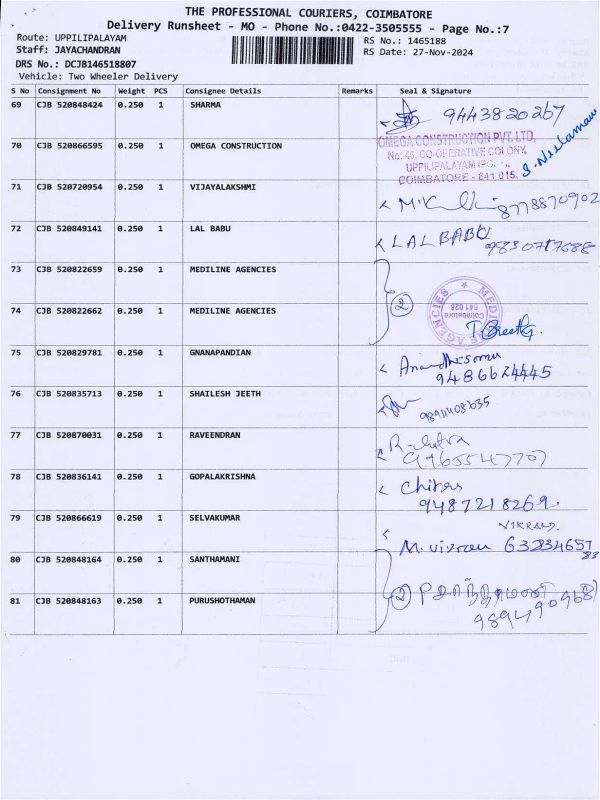 THE PROFESSIONAL COURIERS, COIMBATORE
Delivery Runsheet - MO - Phone No.:0422-3505555 - Page No.:7
Route: UPPILIPALAYAM RS No.: 1465188
Staff: JAYACHANDRAN RS Date: 27-Nov-2024
DRS No.: DCJB146518807
Vehicle: Two Wheeler Delivery
S No Consignment No Weight PCS Consignee Details Remarks Seal & Signature
69 CJB 520848424 0.250 1 SHARMA 9443820267
70 CJB 520866595 0.250 1 OMEGA CONSTRUCTION
OMEGA CONSTRUCTION PVT. LTD,
No: 46, CO-OPERATIVE COLONY,
UPPILIPALAYAM
COIMBATORE - 641 015.
71 CJB 520720954 0.250 1 VIJAYALAKSHMI 8778870902
72 CJB 520849141 0.250 1 LAL BABU LAL BABU
73 CJB 520822659 0.250 1 MEDILINE AGENCIES
2
74 CJB 520822662 0.250 1 MEDILINE AGENCIES
AGENCIES
Coimbatore
641 028
75 CJB 520829781 0.250 1 GNANAPANDIAN
9486624445
76 CJB 520835713 0.250 1 SHAILESH JEETH
77 CJB 520870031 0.250 1 RAVEENDRAN
78 CJB 520836141 0.250 1 GOPALAKRISHNA
9487218269.
79 CJB 520866619 0.250 1 SELVAKUMAR
80 CJB 520848164 0.250 1 SANTHAMANI
81 CJB 520848163 0.250 1 PURUSHOTHAMAN 2